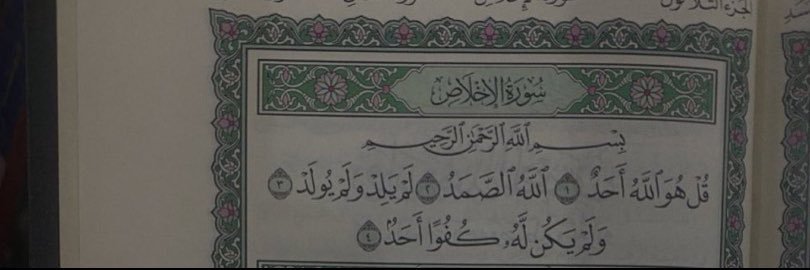 الجزء الثلاثون
سُورَةُ الإِخْلَاصِ
بِسْمِ ٱللَّهِ ٱلرَّحْمَٰنِ ٱلرَّحِيمِ
قُلْ هُوَ ٱللَّهُ أَحَدٌ ١ ٱللَّهُ ٱلصَّمَدُ ٢ لَمْ يَلِدْ وَلَمْ يُولَدْ ٣
وَلَمْ يَكُن لَّهُۥ كُفُوًا أَحَدٌۢ ٤